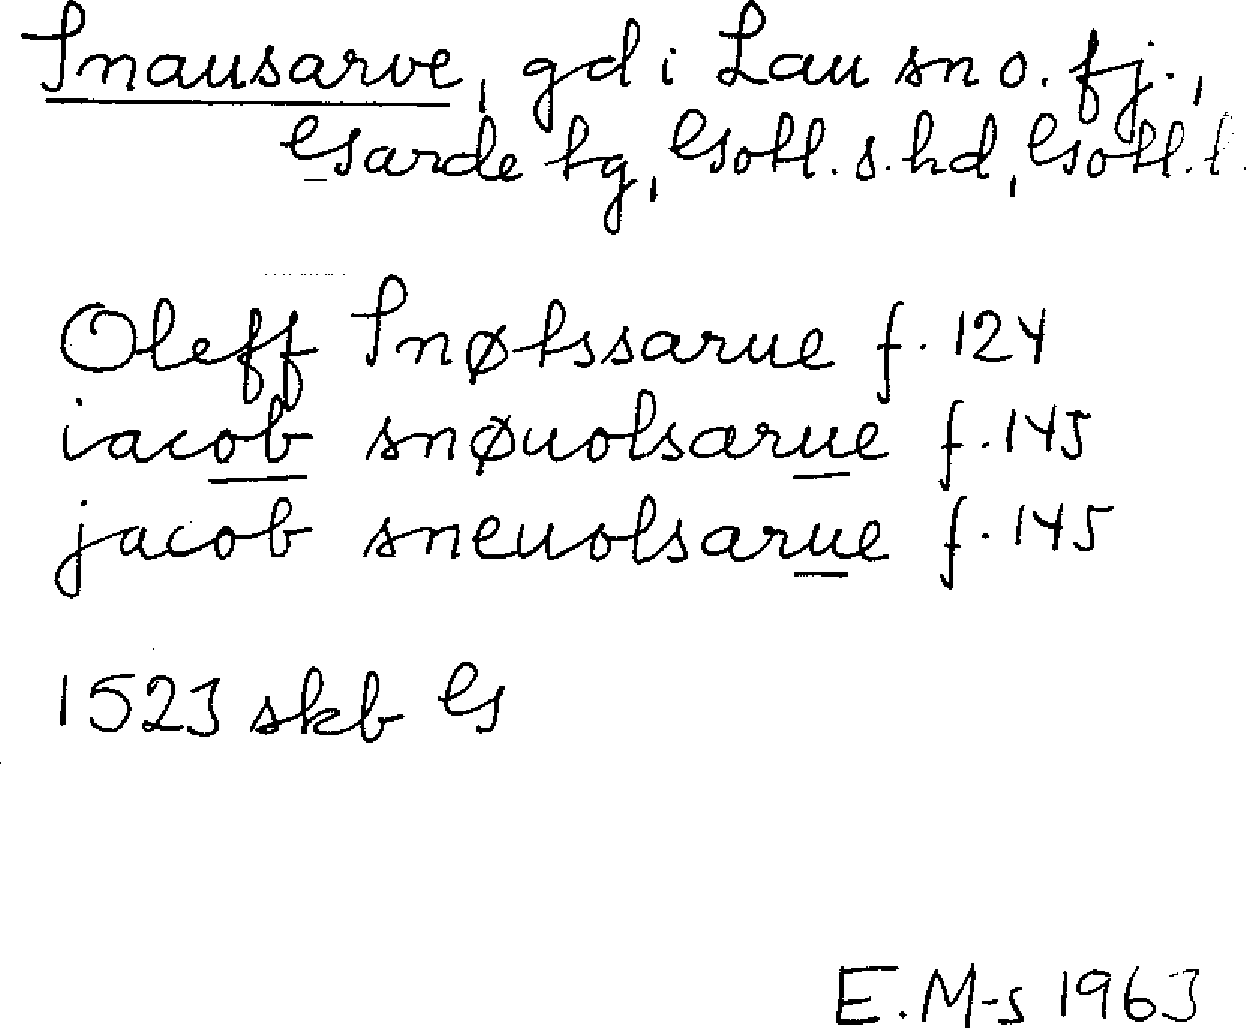 Snausarve, gd i Lau sn o. fj.,
Garde tg, Gotl. s. hd, Gotl. l.
Oleff Snøtssarue f. 124
iacob snøuolsarue f. 145
jacob sneuolsarue f. 145
1523 skb G
E. M-s 1963